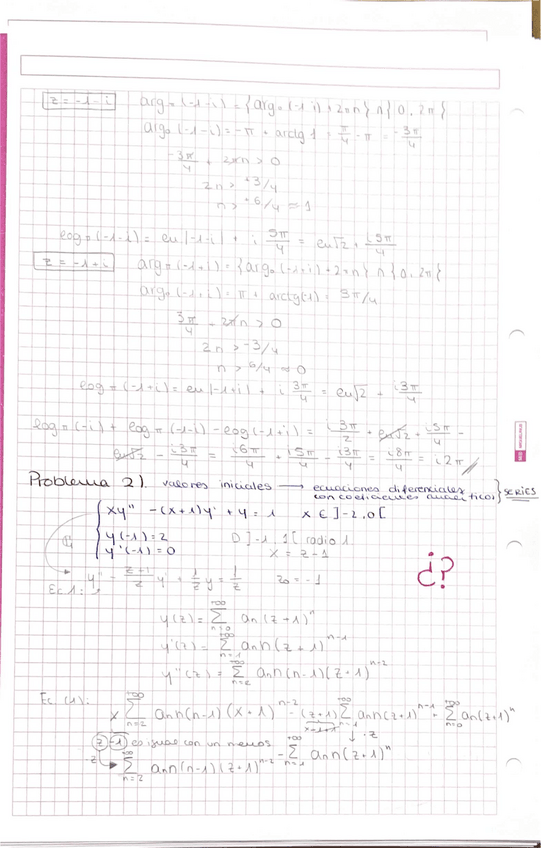 z = -1 - i   arg_π (-1-i) = {arg_0 (-1-i) + 2πn} ∩ [0, 2π[
arg_0 (-1-i) = -π + arctg 1 = π/4 - π = -3π/4
-3π/4 + 2πn > 0
2n > +3/4
n > +6/4 ≈ 1
log_π (-1-i) = ln|-1-i| + i 5π/4 = ln√2 + i5π/4
z = -1 + i   arg_π (-1+i) = {arg_0 (-1+i) + 2πn} ∩ [0, 2π[
arg_0 (-1+i) = π + arctg(1) = 3π/4
3π/4 + 2πn > 0
2n > -3/4
n > 6/4 ≈ 0
log_π (-1+i) = ln|-1+i| + i 3π/4 = ln√2 + i3π/4
log_π (-i) + log_π (-1-i) - log (-1+i) = i3π/2 + ln√2 + i5π/4 -
ln√2 - i3π/4 = i6π/4 + i5π/4 - i3π/4 = i8π/4 = i2π //
Problema 2). valores iniciales → ecuaciones diferenciales con coeficientes analíticos } SERIES
xy'' - (x+1)y' + y = 1   x ∈ ]-2, 0[
y(-1) = 2   D ]-1, 1[ radio 1
y'(-1) = 0   x = z - 1
¿?
y'' - (z+1)/z y' + 1/z y = 1/z   z0 = -1
Ec 1:
y(z) = Σ_{n=0}^{+∞} an (z+1)^n
y'(z) = Σ_{n=1}^{+∞} an n (z+1)^{n-1}
y''(z) = Σ_{n=2}^{+∞} an n(n-1)(z+1)^{n-2}
Ec. (1):
x Σ_{n=2}^{+∞} an n(n-1)(x+1)^{n-2} - (z+1) Σ_{n=1}^{+∞} an n(z+1)^{n-1} + Σ_{n=0}^{+∞} an(z+1)^n
x+1+1   ↓ +z
z - 1   co igual con un menos
-z → Σ_{n=2}^{+∞} an n(n-1)(z+1)^{n-2} - Σ_{n=1}^{+∞} an n(z+1)^n